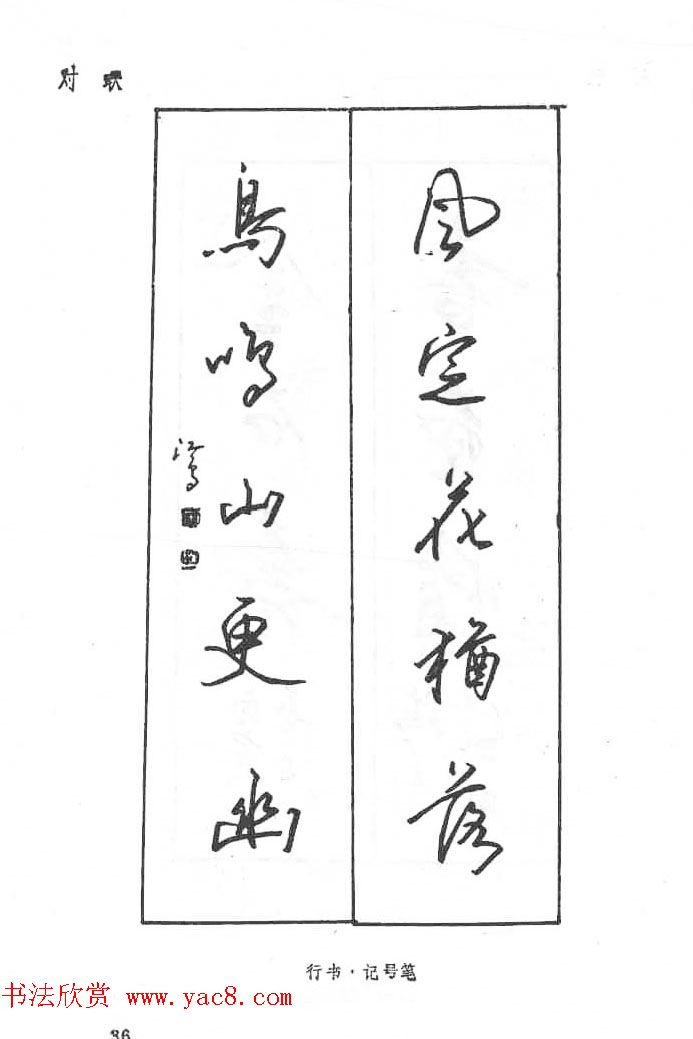 对联
風定花猶落
鳥鳴山更幽
行书·记号笔
书法欣赏 www.yac8.com
36